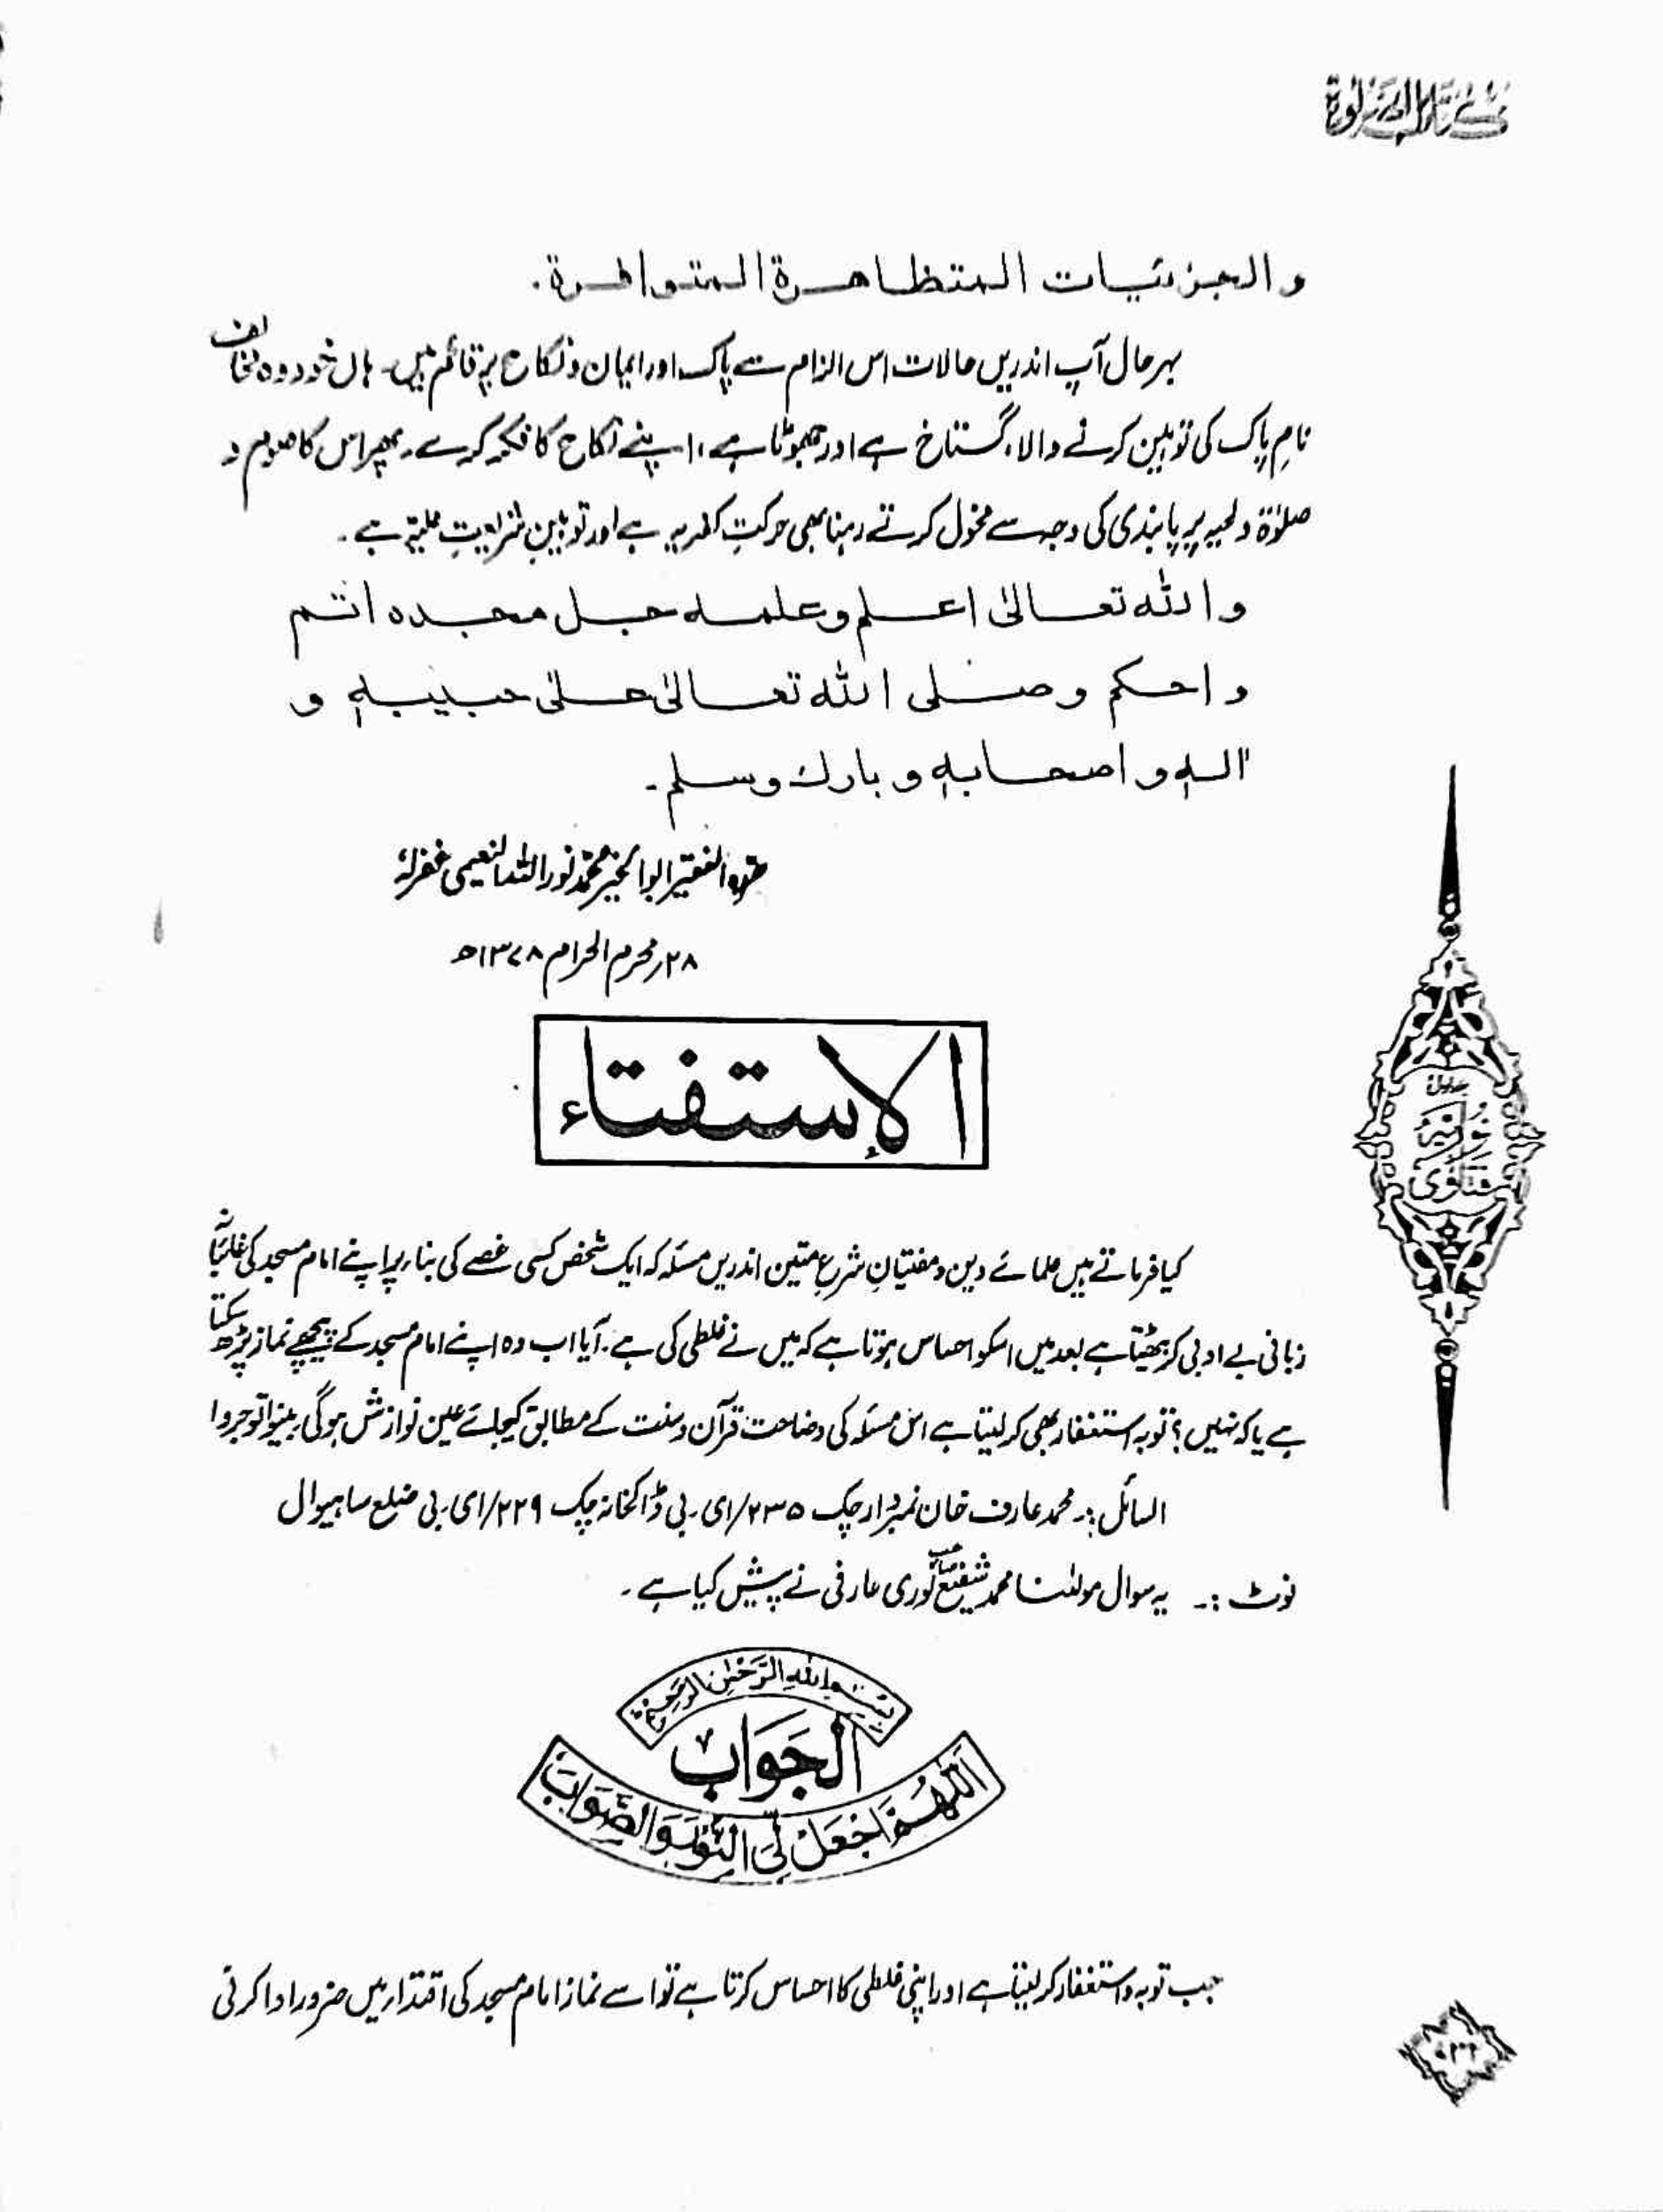 کتاب الصلوٰۃ
والجزئیات المتظاھرۃ المتوافرۃ۔
بہرحال آپ اندریں حالات اس الزام سے پاک اور ایمان و نکاح پر قائم ہیں۔ ہاں خود وہ مخالف
نامِ پاک کی توہین کرنے والا، گستاخ ہے اور جھوٹا ہے، اپنے نکاح کا فکر کرے۔ پھر اس کا صوم و
صلوٰۃ و لحیہ پر پابندی کی وجہ سے مخول کرتے رہنا بھی حرکتِ کفریہ ہے اور توہینِ شریعتِ علیّہ ہے۔
واللہ تعالیٰ اعلم وعلمہ جل مجدہ اتم
واحکم وصلی اللہ تعالیٰ علیٰ حبیبہٖ و
اٰلہٖ واصحابہٖ وبارک وسلم۔
حررہ الفقیر ابوالخیر محمد نور اللہ النعیمی غفرلہٗ
۲۸ر محرم الحرام ۱۳۷۸ھ
الإستفتاء
کیا فرماتے ہیں علمائے دین و مفتیانِ شرع متین اندریں مسئلہ کہ ایک شخص کسی غصے کی بناء پر اپنے امام مسجد کی غائبانہ
زبانی بے ادبی کر بیٹھتا ہے بعد میں اسکو احساس ہوتا ہے کہ میں نے غلطی کی ہے۔ آیا اب وہ اپنے امام مسجد کے پیچھے نماز پڑھ سکتا
ہے یا کہ نہیں؟ توبہ استغفار بھی کر لیتا ہے اس مسئلہ کی وضاحت قرآن و سنت کے مطابق کیجائے عین نوازش ہوگی۔ بینوا توجروا
السائل:۔ محمد عارف خان نمبردار چک ۲۳۵/ای۔بی ڈاکخانہ چک ۲۲۹/ای۔بی ضلع ساہیوال
نوٹ:۔ یہ سوال مولٰنا محمد شفیع صاحب نوری عارفی نے پیش کیا ہے۔
بِسْمِ اللّٰہِ الرَّحْمٰنِ الرَّحِیْمِ
الجَوَابُ
اَللّٰھُمَّ اجْعَلْ لِّیَ النُّوْرَ وَالصَّوَابَ
جب توبہ و استغفار کر لیتا ہے اور اپنی غلطی کا احساس کرتا ہے تو اسے نماز امام مسجد کی اقتداء میں ضرور ادا کرنی
فتاوٰی نوریہ